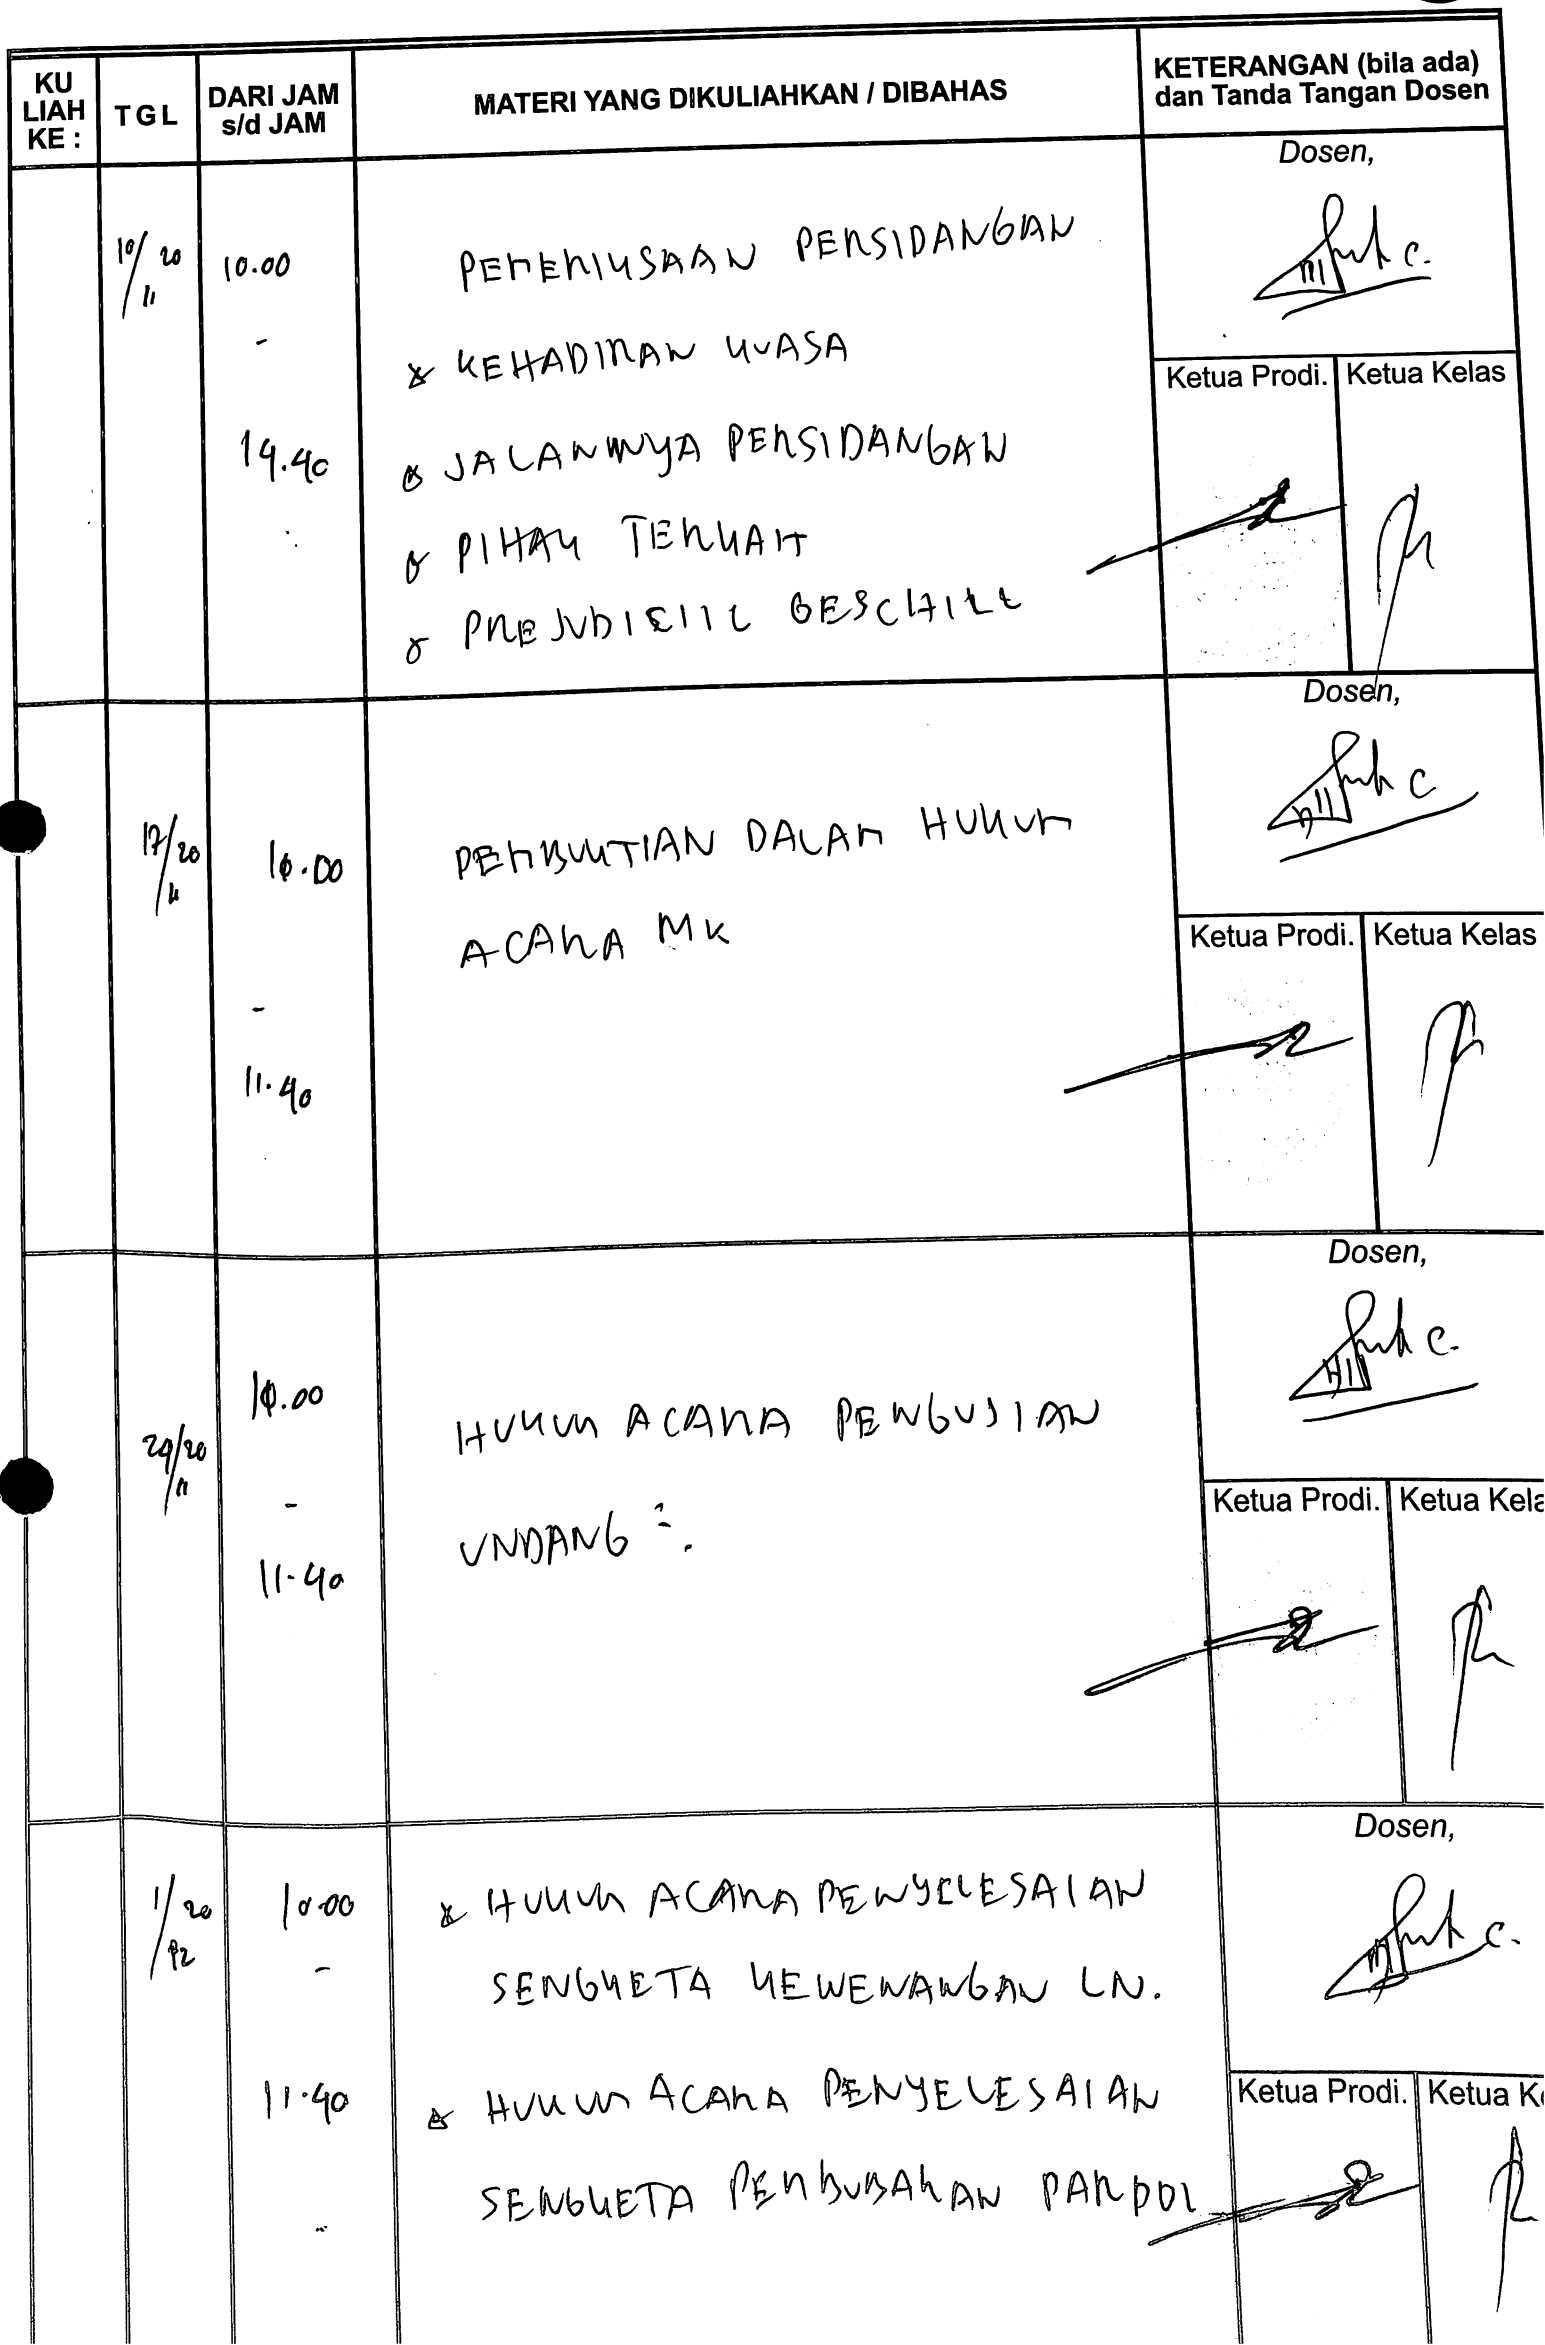 KU LIAH KE :
TGL
DARI JAM s/d JAM
MATERI YANG DIKULIAHKAN / DIBAHAS
KETERANGAN (bila ada) dan Tanda Tangan Dosen
10/11 20
10.00
-
14.40
PEMERIKSAAN PERSIDANGAN
KEHADIRAN KUASA
JALANNYA PERSIDANGAN
PIHAK TERKAIT
PREJUDICIIL GESCHILL
Dosen,
Ketua Prodi.
Ketua Kelas
17/11 20
10.00
-
11.40
PEMBUKTIAN DALAM HUKUM
ACARA MK
Dosen,
Ketua Prodi.
Ketua Kelas
24/11 20
10.00
-
11.40
HUKUM ACARA PENGUJIAN
UNDANG ².
Dosen,
Ketua Prodi.
Ketua Kela
1/12 20
10.00
-
11.40
HUKUM ACARA PENYELESAIAN
SENGKETA KEWENANGAN LN.
HUKUM ACARA PENYELESAIAN
SENGKETA PEMBUBARAN PARPOL
Dosen,
Ketua Prodi.
Ketua K